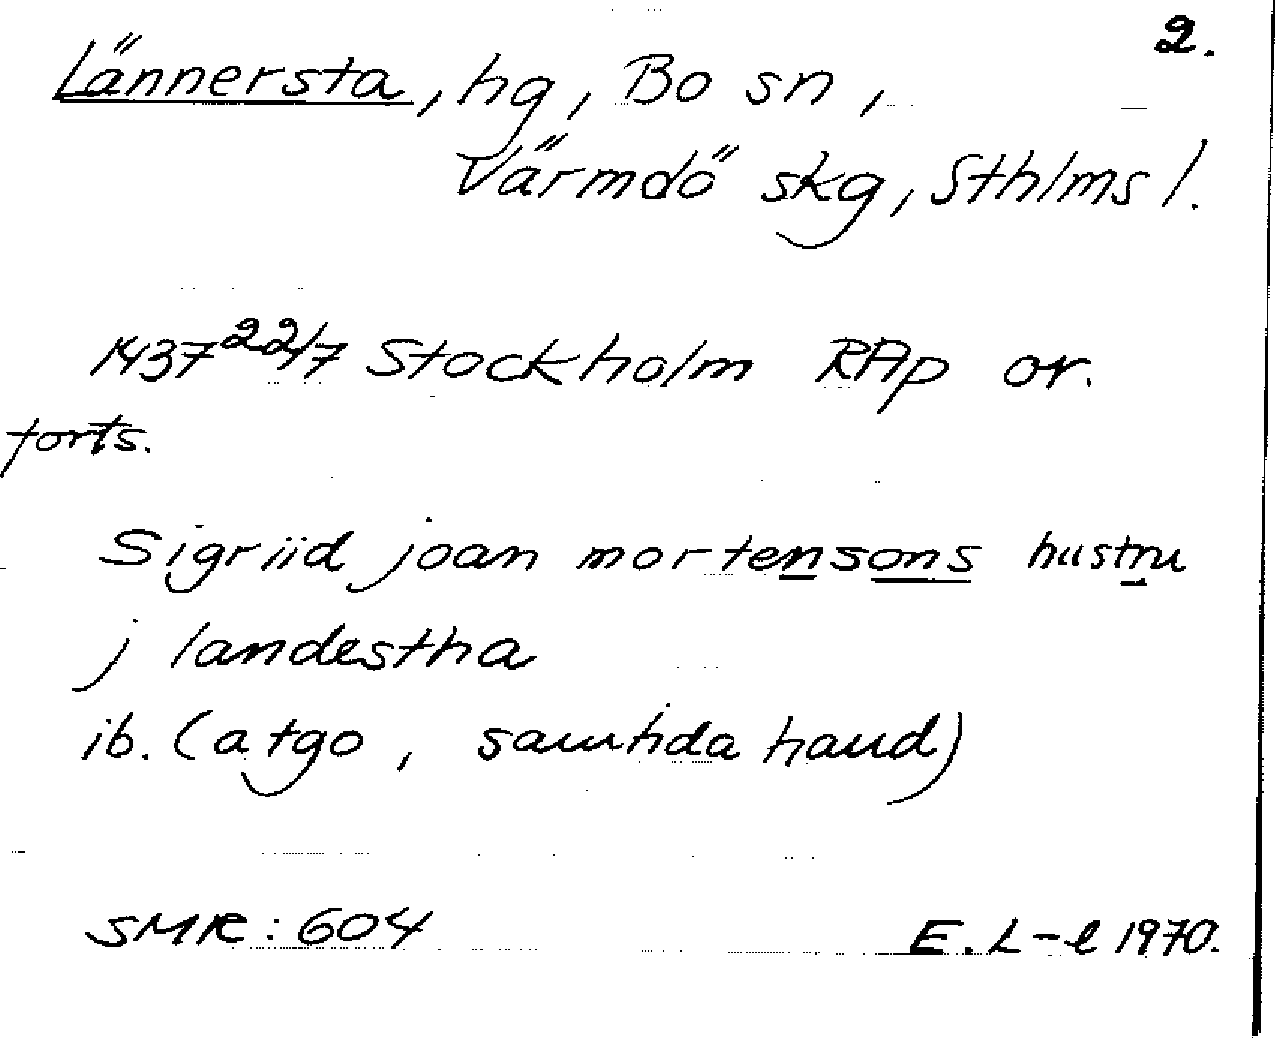 2.
Lännersta, hg, Bo sn,
Värmdö skg, Sthlms l.
1437 22/7 Stockholm RAp or.
forts.
Sigriid joan mortensons hustru
j landestha
ib. (atgo, samtida hand)
SMR: 604 E. L-l 1970.